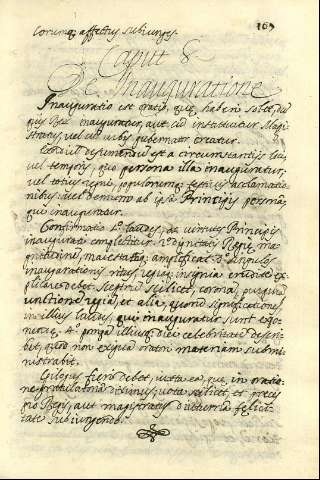 eorumq affectus subiunges.
169
Caput 8
De Inauguratione
Inauguratio est oratio, quæ haberi solet, dum
novus Rex inauguratur, aut cum instituitur Magi
stratus, vel urbis gubernator creatur.
Exordium desumendum est a circumstantijs loci,
vel temporis, quo persona illa inauguratur,
vel totius regni, populorumq festivis acclamatio
nibus, vel demum ab ipsa Principis persona,
quæ inauguratur.
Confirmatio 1º laudes, ac virtutes Principis
inaugurati complectitur. 2º dignitatis Regiæ ma
gnitudinem, maiestatemq amplificat. 3º singulos
inaugurationis ritus, regia insignia erudite ex
plicare debet, sceptrum scilicet, coronam, purpuram
unctionem regiam et alia, quorum significationes
in illius laudes, qui inauguratur sunt expo
nendæ. 4º illius diei celebritatem descri
bit, quæ non exiguam oratori materiam submi
nistrabit.
Epilogus fieri debet, iuxta ea, quæ in oratio
ne gratulatoria diximus, vota scilicet, et preces
pro Rege, aut magistratus diuturna felici
tate subiungendo.